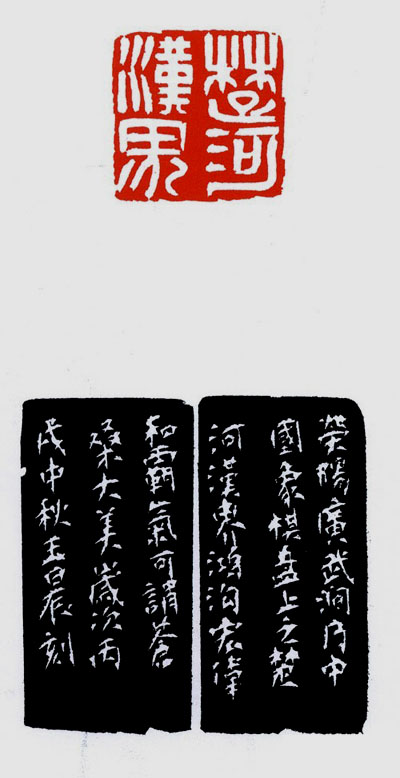 楚河
漢界
滎陽廣武澗乃中
國象棋盤上之楚
河漢界鴻溝宏偉
和霸氣可謂蒼
桑大美歲次丙
戌中秋辰刻